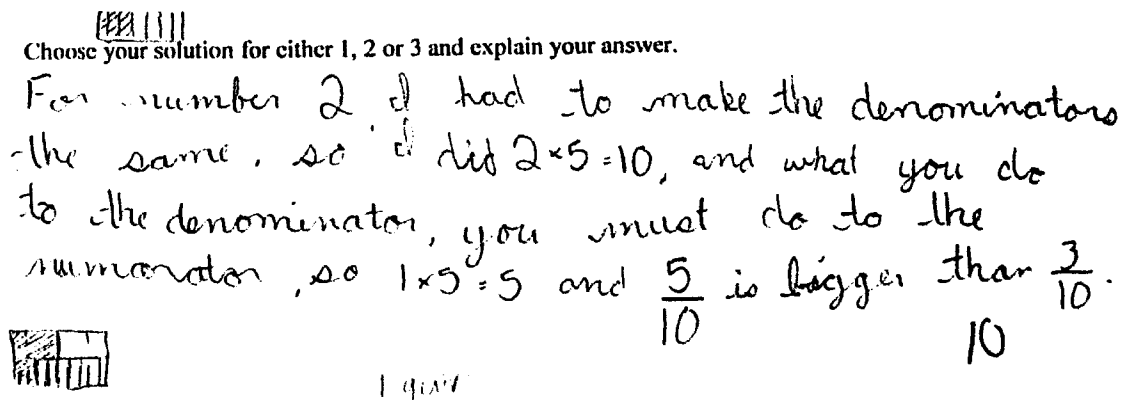 Choose your solution for either 1, 2 or 3 and explain your answer.
For number 2 I had to make the denominators
the same, so I did 2×5=10, and what you do
to the denominator, you must do to the
numorator, so 1×5=5 and 5/10 is bigger than 3/10.
10